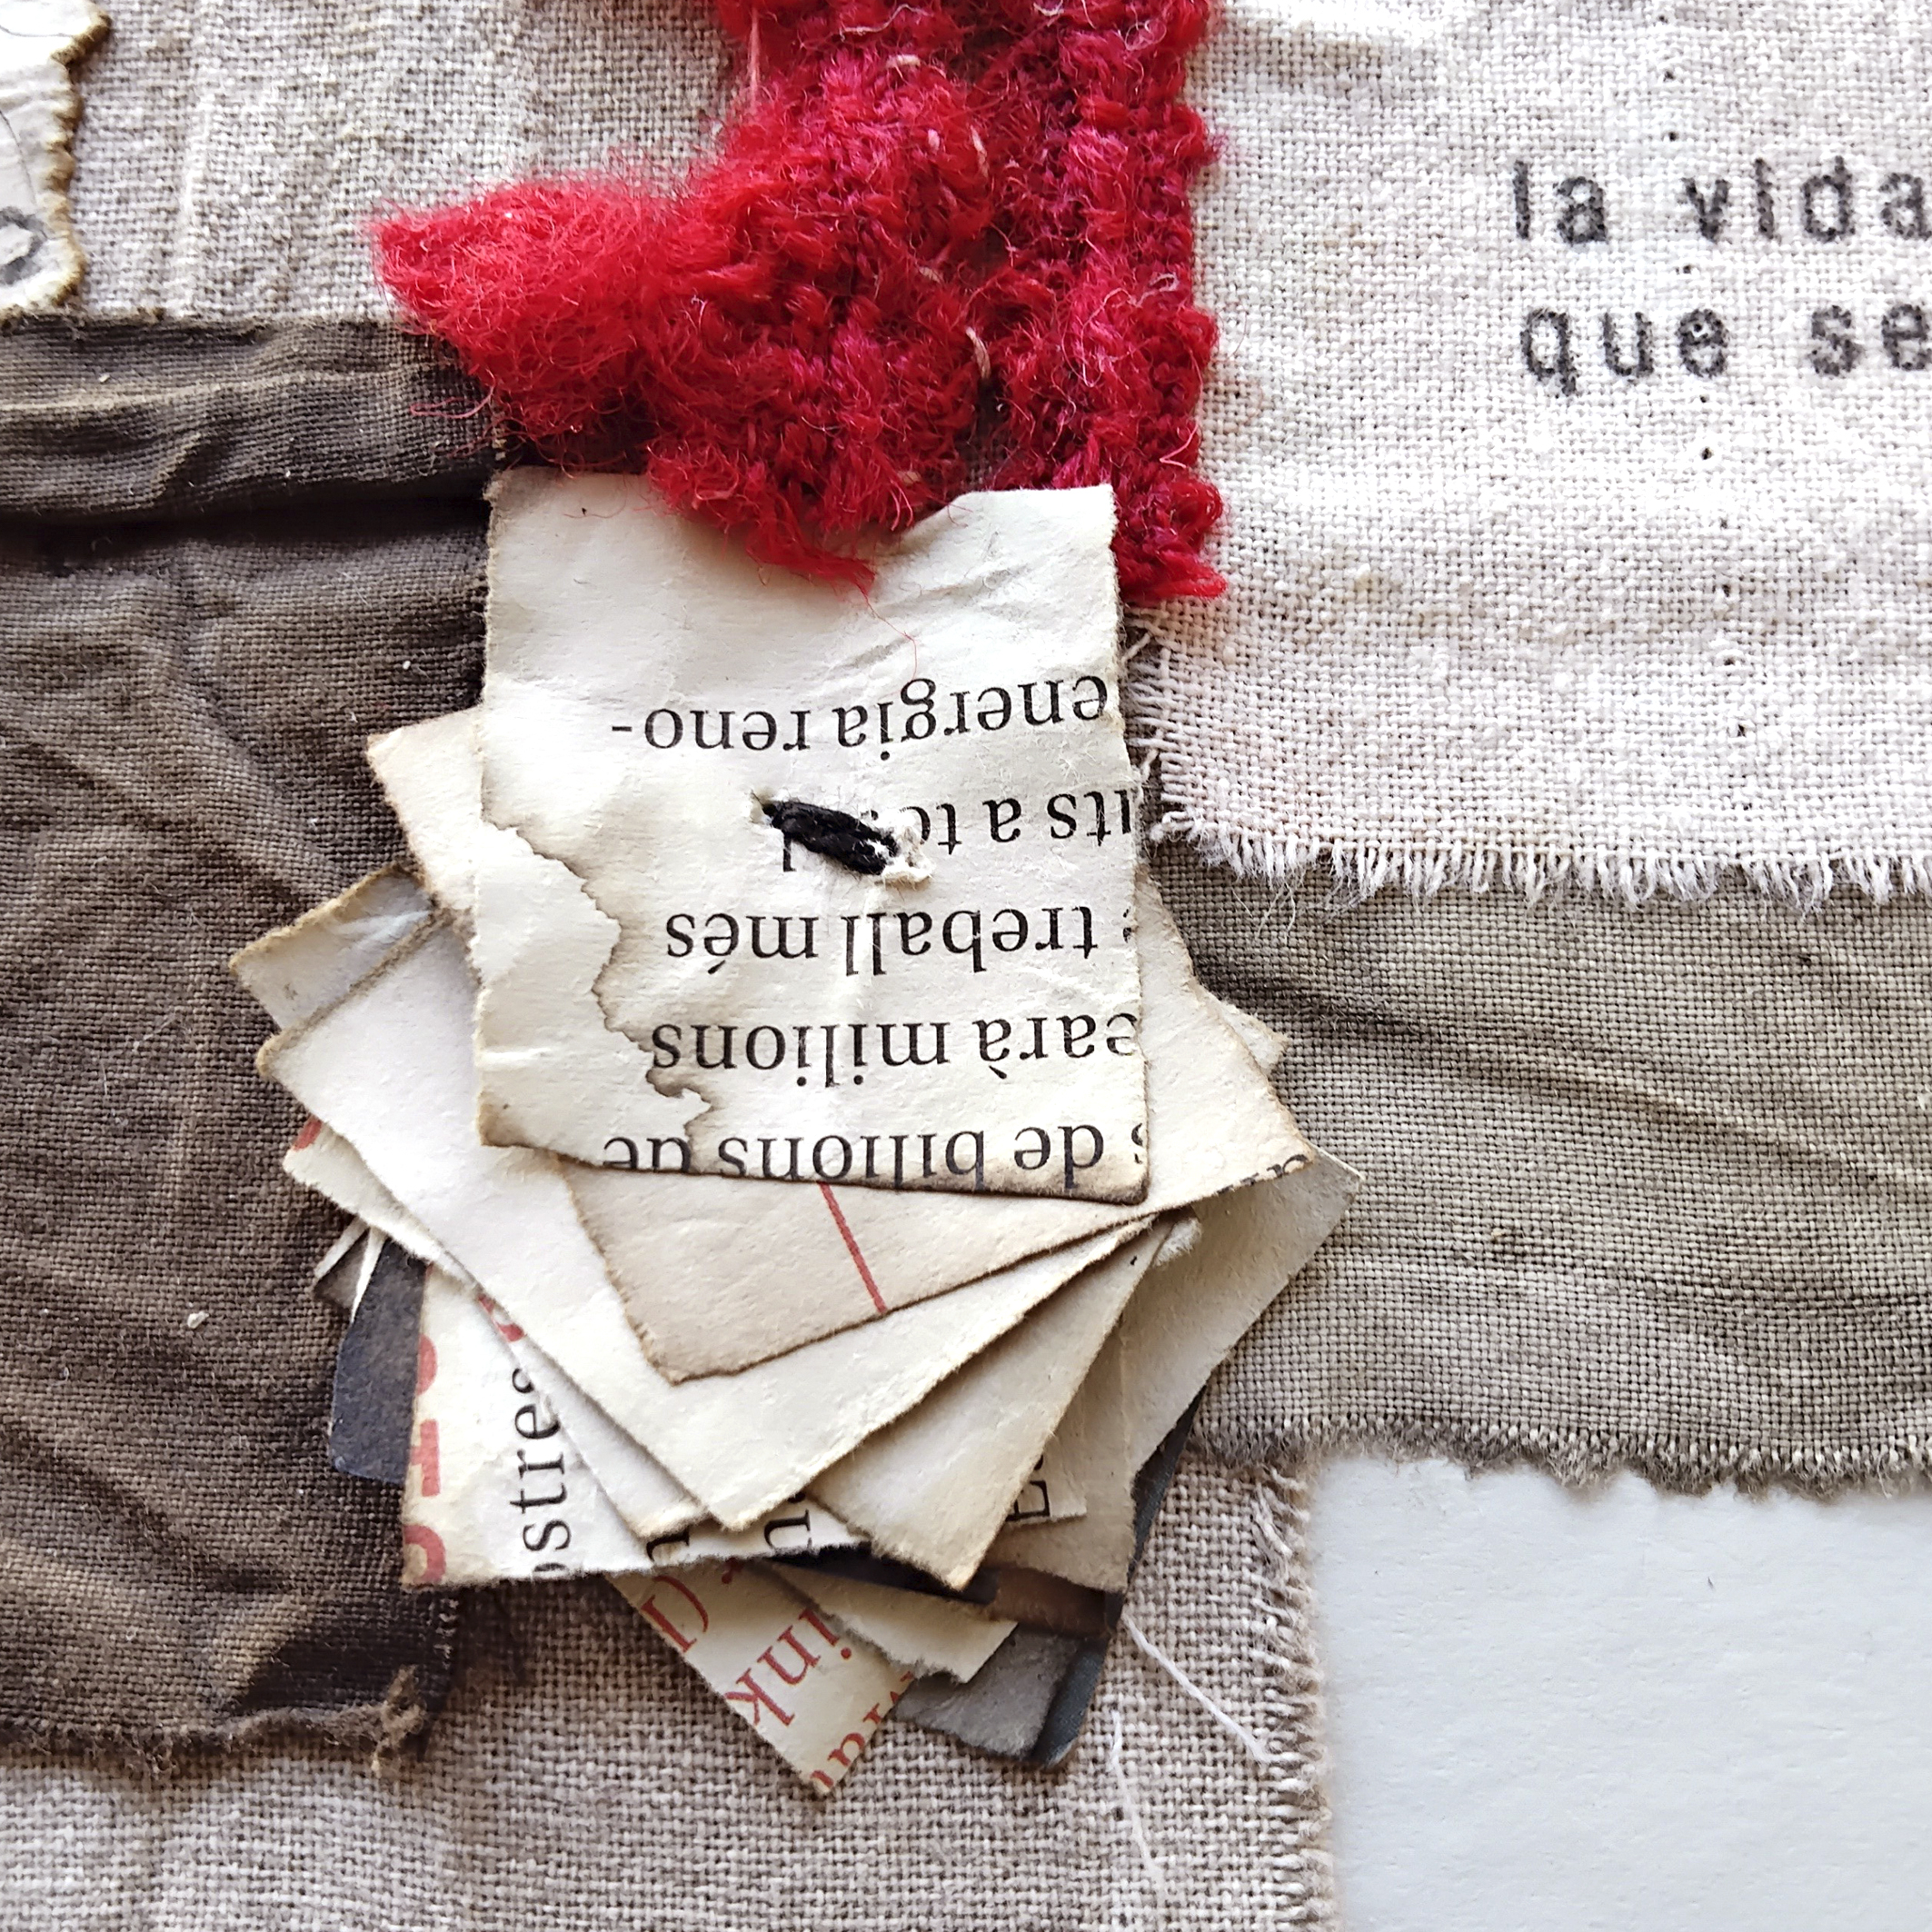 la vida
que se
de bilions de
earà milions
treball més
ts a to
energia reno-
ostres
ink